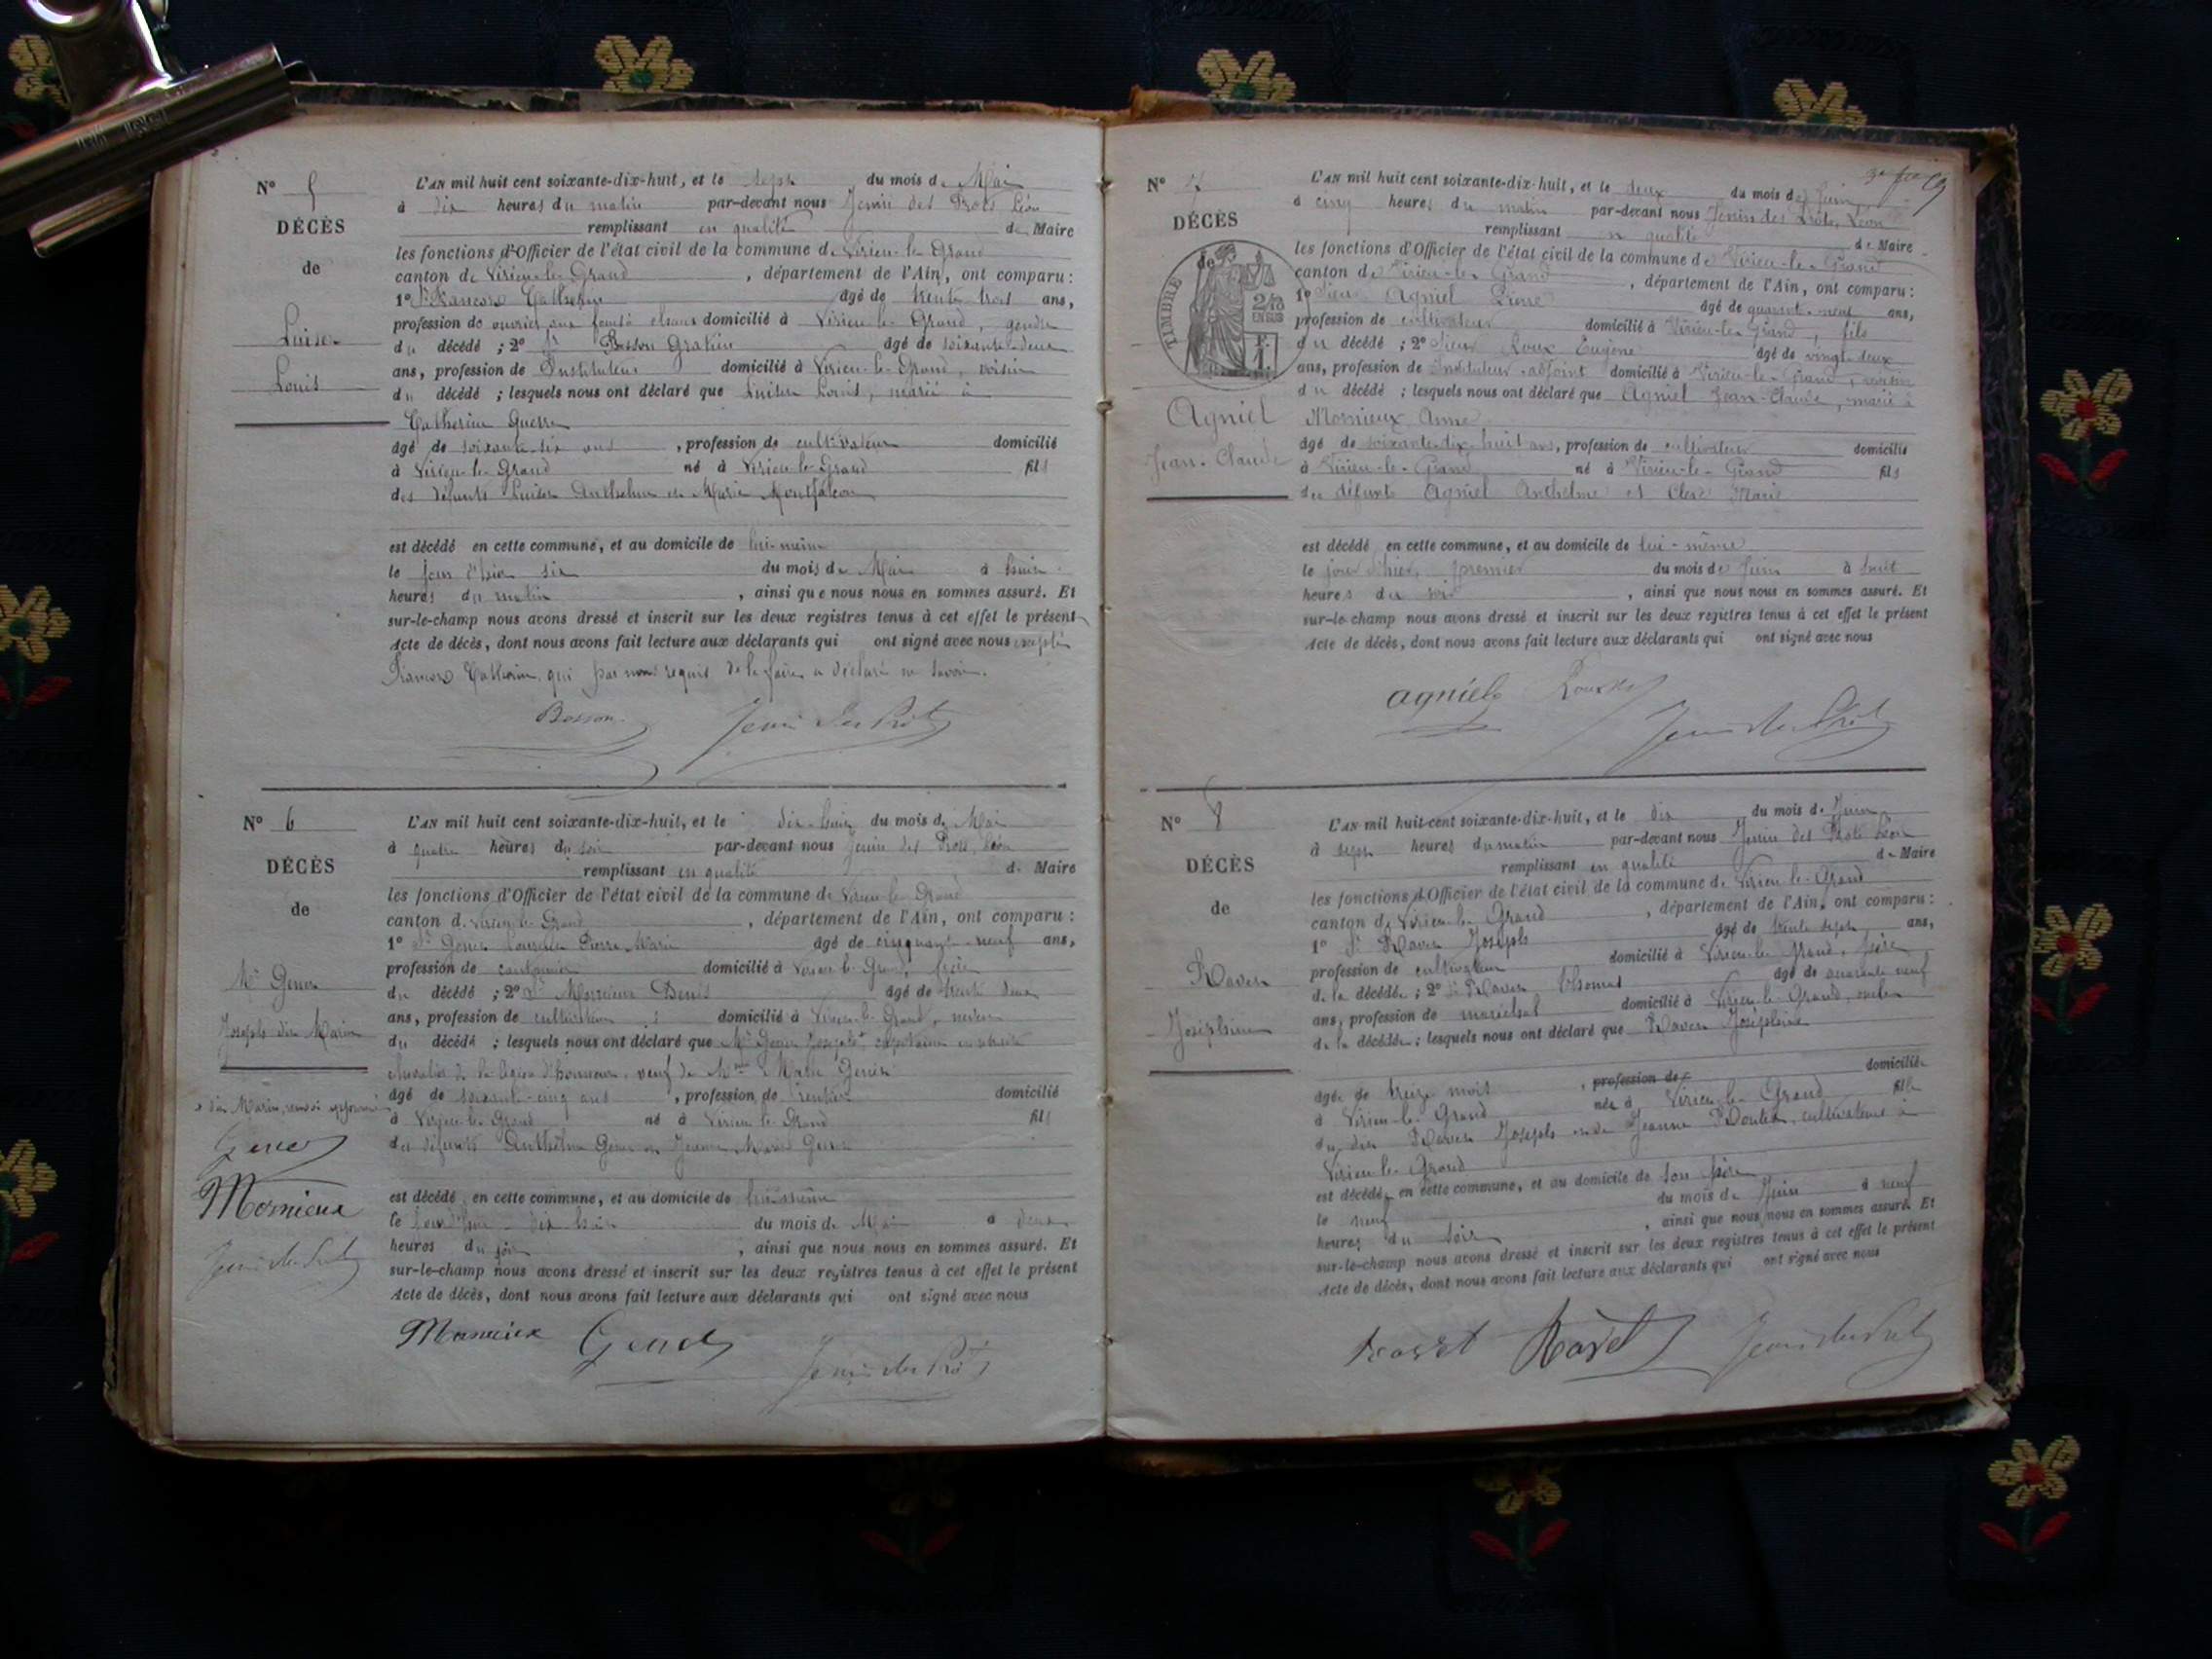 N° 5
DÉCÈS
de
Luiset
Louis
L'AN mil huit cent soixante-dix-huit, et le sept du mois de Mai
à dix heures du matin par-devant nous Jenin des Prots Léon
remplissant en qualité de Maire
les fonctions d'Officier de l'état civil de la commune de Virieu-le-Grand
canton de Virieu-le-Grand, département de l'Ain, ont comparu :
1° Catherin âgé de trente trois ans,
profession de ouvrier domicilié à Virieu-le-Grand, gendre
du décédé ; 2° Sr Besson Gratien âgé de soixante-deux
ans, profession de Instituteur domicilié à Virieu-le-Grand, voisin
du décédé ; lesquels nous ont déclaré que Luiset Louis, marié à
Catherine Guerre
âgé de soixante six ans, profession de cultivateur domicilié
à Virieu-le-Grand né à Virieu-le-Grand fils
des défunts Luiset Anthelme et Marie Montfalcon
est décédé en cette commune, et au domicile de lui-même
le jour d'hier six du mois de Mai à huit
heures du matin, ainsi que nous nous en sommes assuré. Et
sur-le-champ nous avons dressé et inscrit sur les deux registres tenus à cet effet le présent
Acte de décès, dont nous avons fait lecture aux déclarants qui ont signé avec nous excepté
Catherin, qui par nous requis de le faire a déclaré ne savoir.
Besson Jenin des Prots
N° 6
DÉCÈS
de
Mr Genin
Joseph dit Marin
dit Marin, renvoi approuvé
Mornieux
Jenin des Prots
L'AN mil huit cent soixante-dix-huit, et le dix-huit du mois de Mai
à quatre heures du soir par-devant nous Jenin des Prots, Léon
remplissant en qualité de Maire
les fonctions d'Officier de l'état civil de la commune de Virieu-le-Grand
canton de Virieu-le-Grand, département de l'Ain, ont comparu :
1° Sr Pierre Marie âgé de cinquante-neuf ans,
profession de cantonnier domicilié à Virieu-le-Grand, frère
du décédé ; 2° Sr Mornieux Denis âgé de trente deux
ans, profession de cultivateur domicilié à Virieu-le-Grand, neveu
du décédé ; lesquels nous ont déclaré que Mr Joseph, capitaine en retraite
chevalier de la légion d'honneur, veuf de
âgé de soixante-cinq ans, profession de rentier domicilié
à Virieu-le-Grand né à Virieu-le-Grand fils
des défunts Anthelme et Jeanne Marie
est décédé en cette commune, et au domicile de lui-même
le dix huit du mois de Mai à deux
heures du soir, ainsi que nous nous en sommes assuré. Et
sur-le-champ nous avons dressé et inscrit sur les deux registres tenus à cet effet le présent
Acte de décès, dont nous avons fait lecture aux déclarants qui ont signé avec nous
Mornieux Jenin des Prots
N° 7
DÉCÈS
de
TIMBRE
Agniel
Jean-Claude
L'AN mil huit cent soixante-dix-huit, et le deux du mois de Juin
à cinq heures du matin par-devant nous Jenin des Prots, Léon
remplissant en qualité de Maire
les fonctions d'Officier de l'état civil de la commune de Virieu-le-Grand
canton de Virieu-le-Grand, département de l'Ain, ont comparu :
1° Sieur Agniel Pierre âgé de quarante-neuf ans,
profession de cultivateur domicilié à Virieu-le-Grand, fils
du décédé ; 2° Sieur Roux Eugène âgé de vingt-deux
ans, profession de Instituteur-adjoint domicilié à Virieu-le-Grand, voisin
du décédé ; lesquels nous ont déclaré que Agniel Jean-Claude, marié à
Mornieux Anne
âgé de soixante-dix-huit ans, profession de cultivateur domicilié
à Virieu-le-Grand né à Virieu-le-Grand fils
des défunts Agniel Anthelme et Clerc Marie
est décédé en cette commune, et au domicile de lui-même
le jour d'hier, premier du mois de Juin à huit
heures du soir, ainsi que nous nous en sommes assuré. Et
sur-le-champ nous avons dressé et inscrit sur les deux registres tenus à cet effet le présent
Acte de décès, dont nous avons fait lecture aux déclarants qui ont signé avec nous
agniel Roux Jenin des Prots
N° 8
DÉCÈS
de
Ravet
Joséphine
L'AN mil huit cent soixante-dix-huit, et le dix du mois de Juin
à sept heures du matin par-devant nous Jenin des Prots Léon
remplissant en qualité de Maire
les fonctions d'Officier de l'état civil de la commune de Virieu-le-Grand
canton de Virieu-le-Grand, département de l'Ain, ont comparu :
1° Sr Ravet Joseph âgé de trente sept ans,
profession de cultivateur domicilié à Virieu-le-Grand, père
de la décédée ; 2° Sr Ravet Thomas âgé de quarante neuf
ans, profession de maréchal domicilié à Virieu-le-Grand, oncle
de la décédée ; lesquels nous ont déclaré que Ravet Joséphine
âgée de treize mois, profession de domiciliée
à Virieu-le-Grand née à Virieu-le-Grand fille
du dit Ravet Joseph et de Jeanne, cultivateurs à
Virieu-le-Grand
est décédée en cette commune, et au domicile de son père
le neuf du mois de Juin à neuf
heures du soir, ainsi que nous nous en sommes assuré. Et
sur-le-champ nous avons dressé et inscrit sur les deux registres tenus à cet effet le présent
Acte de décès, dont nous avons fait lecture aux déclarants qui ont signé avec nous
ravet Ravet Jenin des Prots